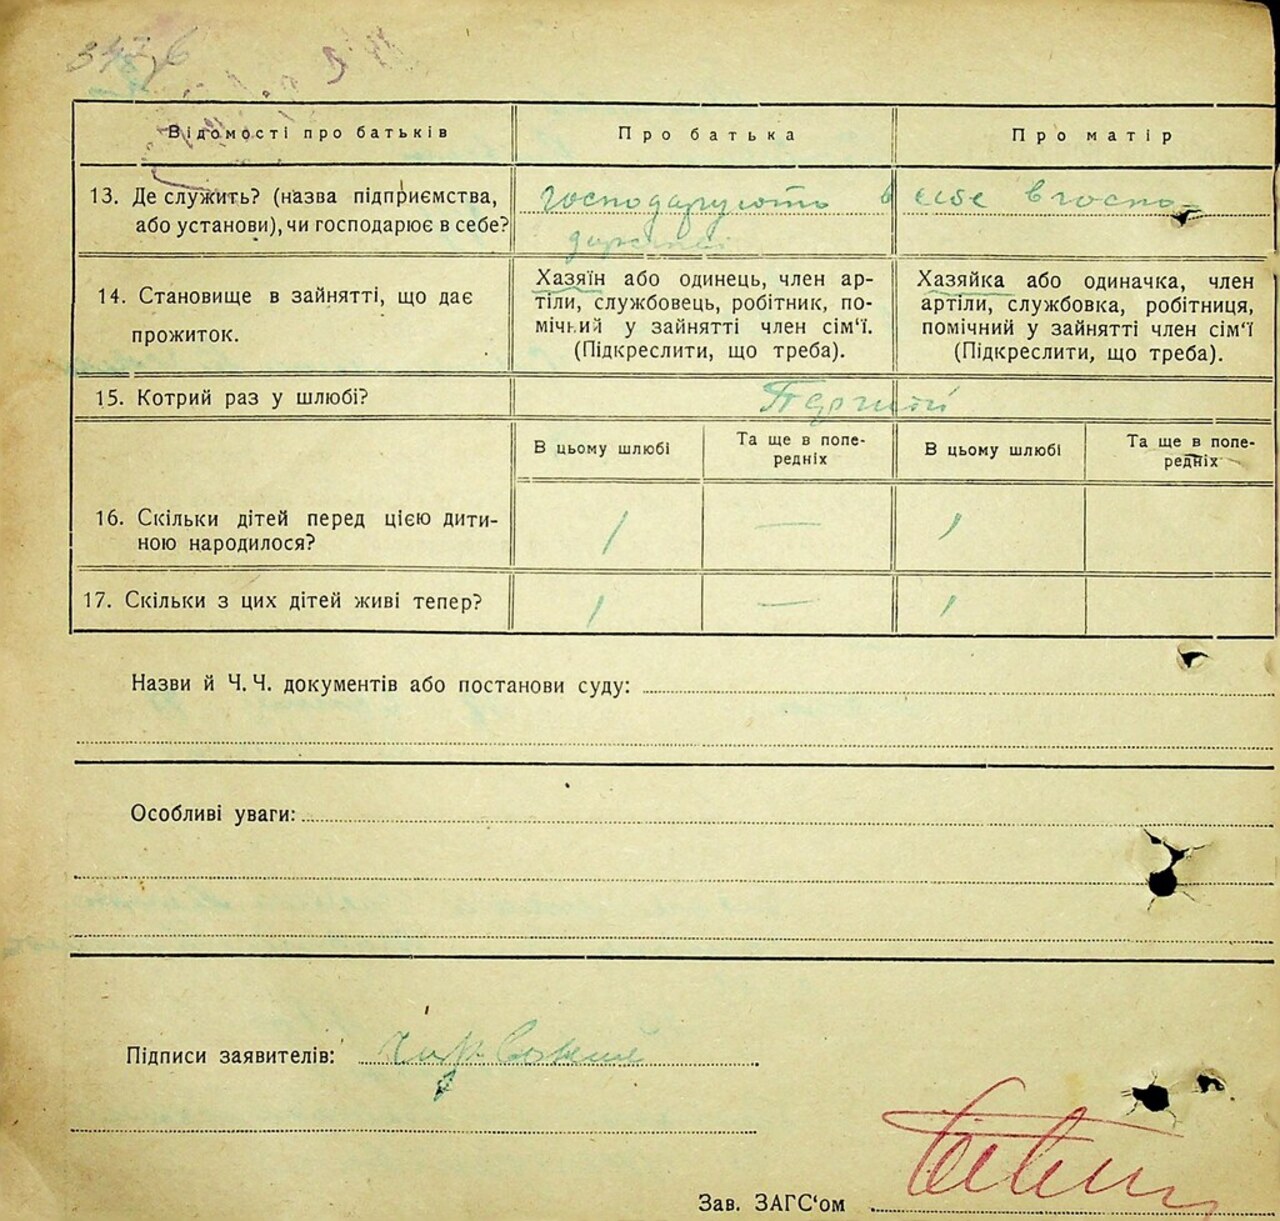 Відомості про батьків
Про батька
Про матір
13. Де служить? (назва підприємства,
або установи), чи господарює в себе?
господарують в себе в госпо-
дарстві
14. Становище в зайнятті, що дає
прожиток.
Хазяїн або одинець, член ар-
тіли, службовець, робітник, по-
мічний у зайнятті член сім‘ї.
(Підкреслити, що треба).
Хазяйка або одиначка, член
артіли, службовка, робітниця,
помічний у зайнятті член сім‘ї
(Підкреслити, що треба).
15. Котрий раз у шлюбі?
В цьому шлюбі
Та ще в попе-
редніх
В цьому шлюбі
Та ще в попе-
редніх
16. Скільки дітей перед цією дити-
ною народилося?
1 — 1
17. Скільки з цих дітей живі тепер?
1 — 1
Назви й Ч. Ч. документів або постанови суду:
Особливі уваги:
Підписи заявителів:
Зав. ЗАГС‘ом